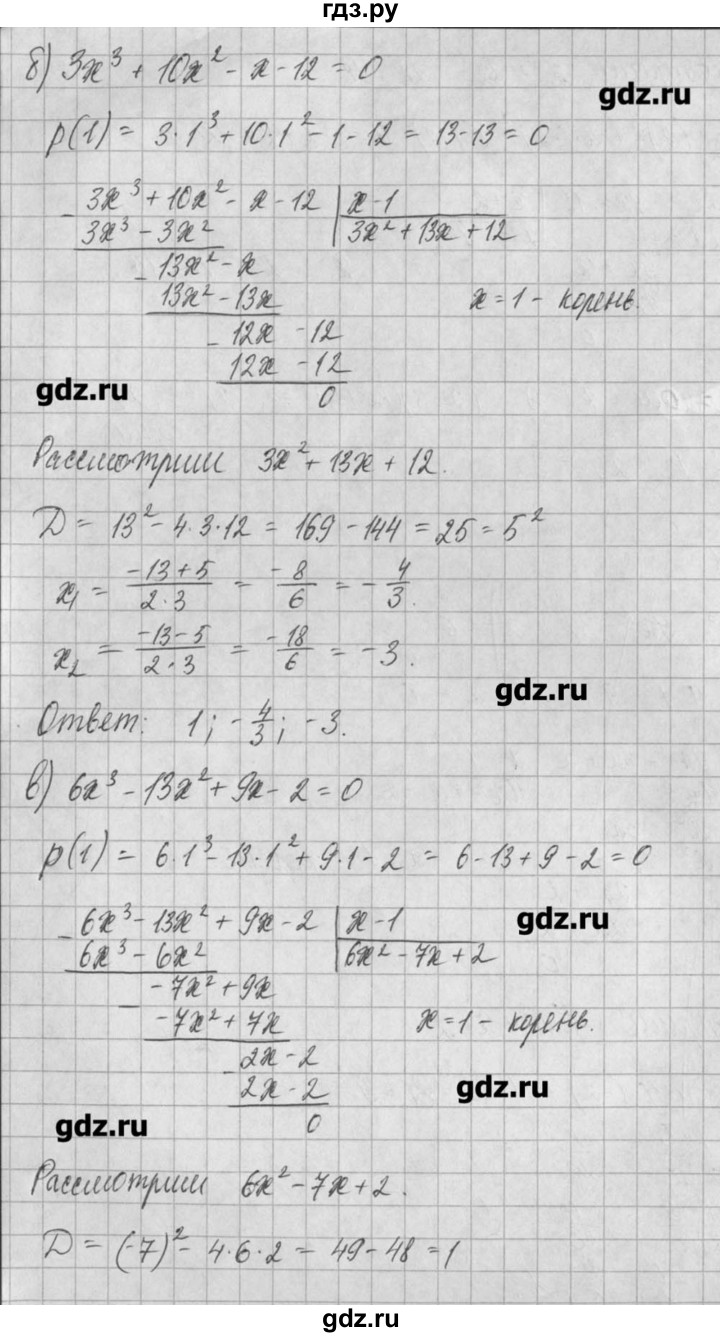 гдз.ру
б) 3x³ + 10x² - x - 12 = 0
gdz.ru
p(1) = 3·1³ + 10·1² - 1 - 12 = 13 - 13 = 0
3x³ + 10x² - x - 12 | x - 1
3x³ - 3x² | 3x² + 13x + 12
13x² - x
13x² - 13x
x = 1 - корень.
12x - 12
12x - 12
gdz.ru
0
Рассмотрим 3x² + 13x + 12.
D = 13² - 4·3·12 = 169 - 144 = 25 = 5²
x₁ = (-13 + 5)/(2·3) = -8/6 = -4/3.
x₂ = (-13 - 5)/(2·3) = -18/6 = -3.
gdz.ru
Ответ: 1; -4/3; -3.
в) 6x³ - 13x² + 9x - 2 = 0
p(1) = 6·1³ - 13·1² + 9·1 - 2 = 6 - 13 + 9 - 2 = 0
6x³ - 13x² + 9x - 2 | x - 1
gdz.ru
6x³ - 6x² | 6x² - 7x + 2
-7x² + 9x
-7x² + 7x
x = 1 - корень.
2x - 2
2x - 2
gdz.ru
0
gdz.ru
Рассмотрим 6x² - 7x + 2.
D = (-7)² - 4·6·2 = 49 - 48 = 1
gdz.ru